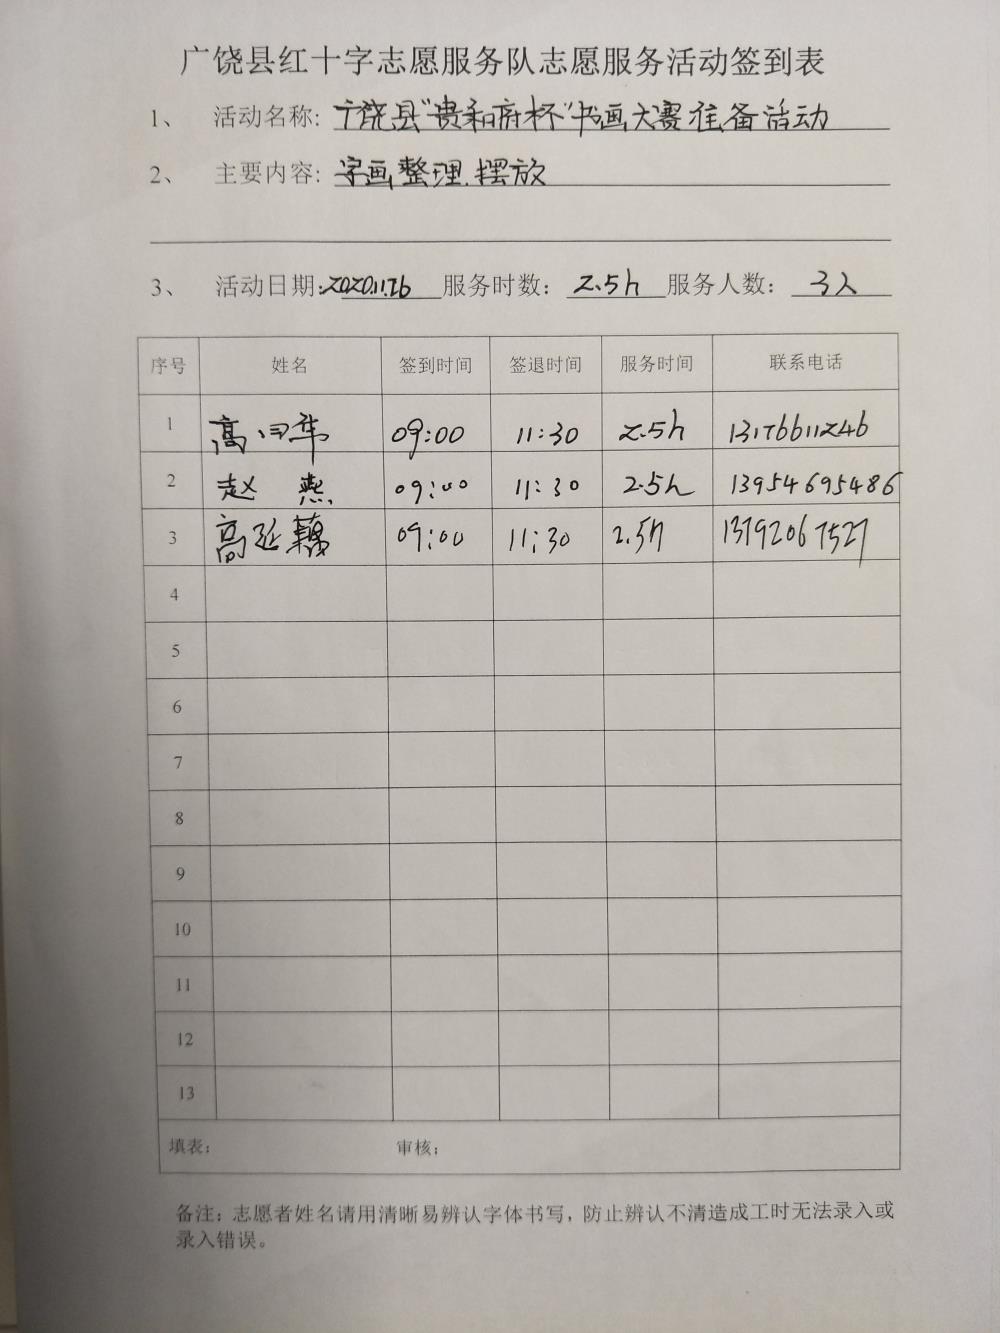 广饶县红十字志愿服务队志愿服务活动签到表
1、 活动名称: 广饶县"贵和府杯"书画大赛准备活动
2、 主要内容: 字画整理.摆放
3、 活动日期:2020.11.26 服务时数: 2.5h 服务人数: 3人
序号 姓名 签到时间 签退时间 服务时间 联系电话
1 高 09:00 11:30 2.5h 13176611246
2 赵燕 09:00 11:30 2.5h 13954695486
3 高延 09:00 11:30 2.5h 13792067527
4
5
6
7
8
9
10
11
12
13
填表: 审核:
备注: 志愿者姓名请用清晰易辨认字体书写, 防止辨认不清造成工时无法录入或
录入错误。